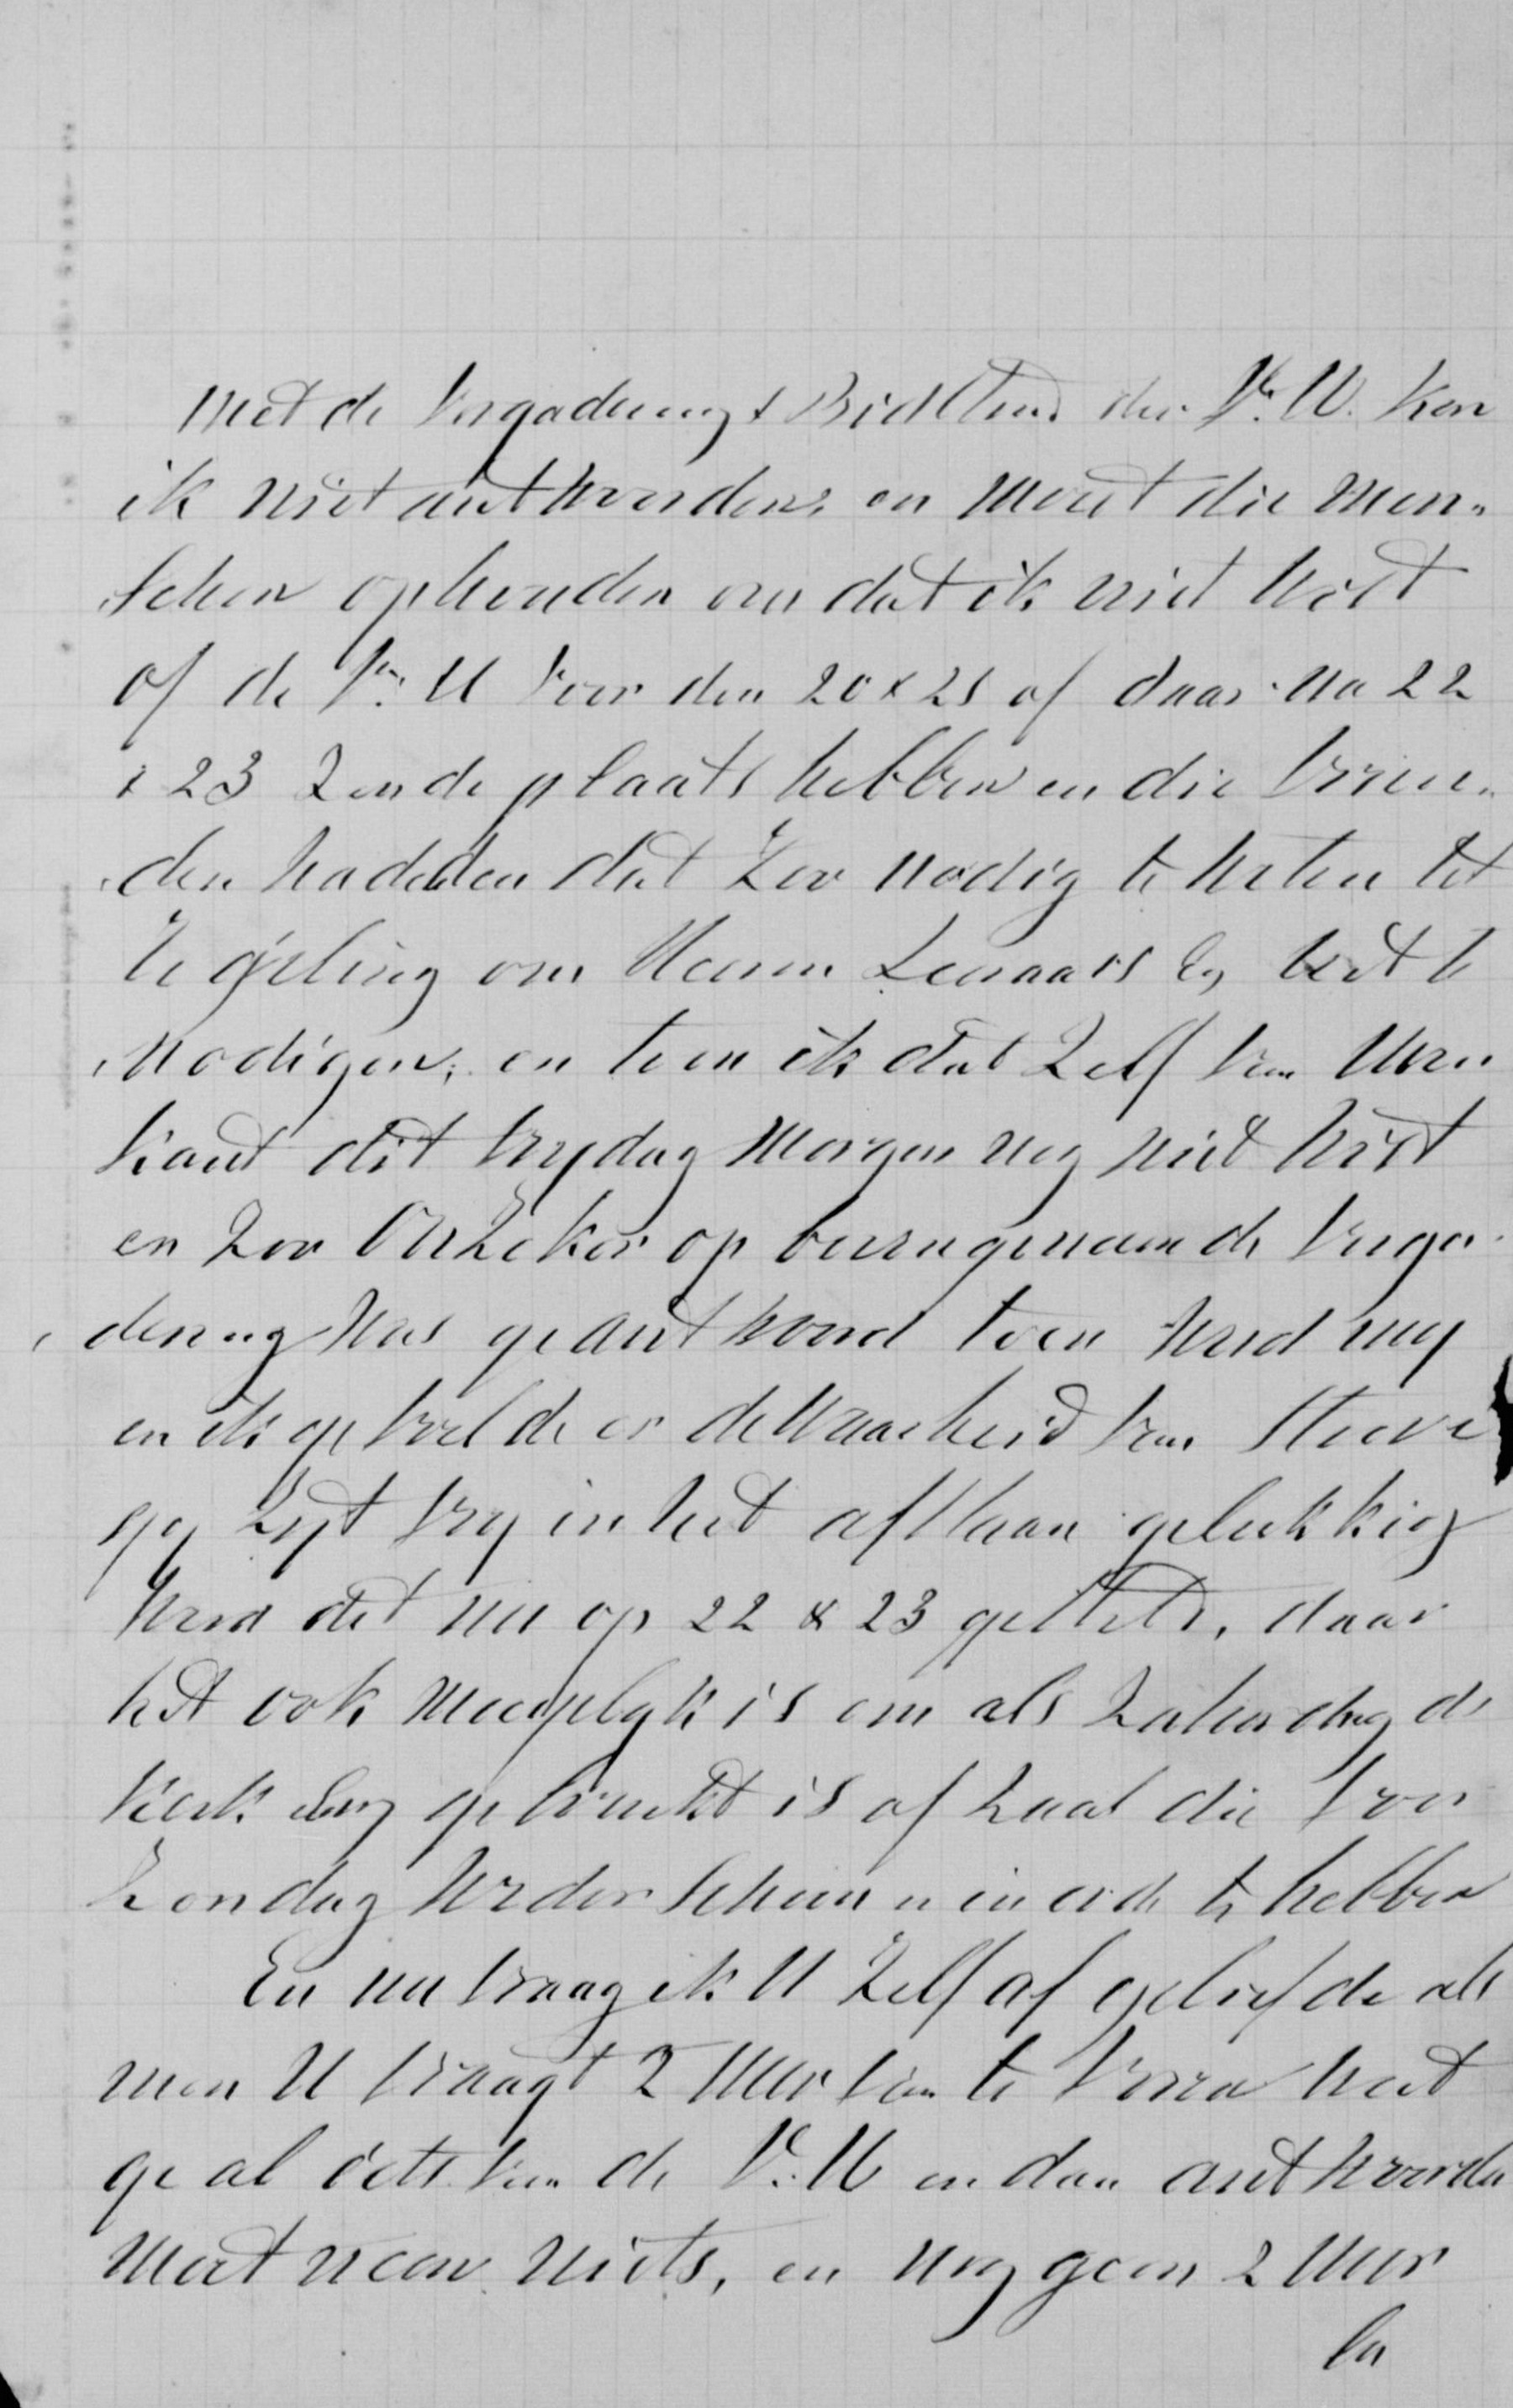 Met de Vergadering & Bidstond der V.U. kon
ik niet antwoorden, en moest die men-
schen ophouden om dat ik niet wist
of de V.U voor den 20 & 21 of daar na 22
& 23 zoude plaats hebben en die vrien-
den hadden dat zoo nodig te weten tot
regeling om Heeren by tyds te
Nodigen, en toen ik dat zelf van Uwen
kant dit vrydag morgen nog niet wist
en zoo onzeker op bovengenoemde verga-
dering was geantwoord toen werd my
en ik gevoelde er de waarheid van
gy zyt vry in het afslaan gelukkig
werd dit nu op 22 & 23 gesteld, daar
het ook moeyelyk is om als Zaterdag de
kerk nog gebruikt is of zaal die voor
Zondag weder schoon in orde te hebben
En nu vraag ik U zelf af geliefde als
men U vraagt 2 uur van te voren weet
ge al iets van de V.U en dan antwoorden
moet neen niets, en nog geen 2 uur
la